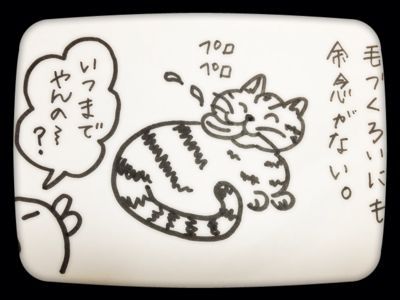 毛づくろいにも
余念がない。
ペロ
ペロ
いつまで
やんの〜
？